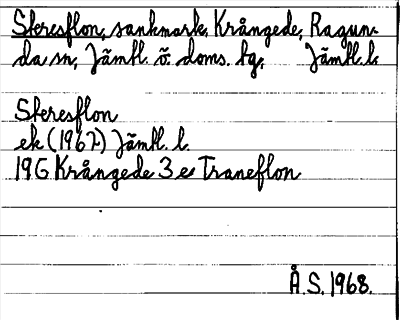 Steresflon, sankmark, Krångede, Ragun-
da sn, Jämtl. ö. doms. tg. Jämtl. l.
Steresflon
ek (1967) Jämtl. l.
19G Krångede 3 e Traneflon
Å.S. 1968.